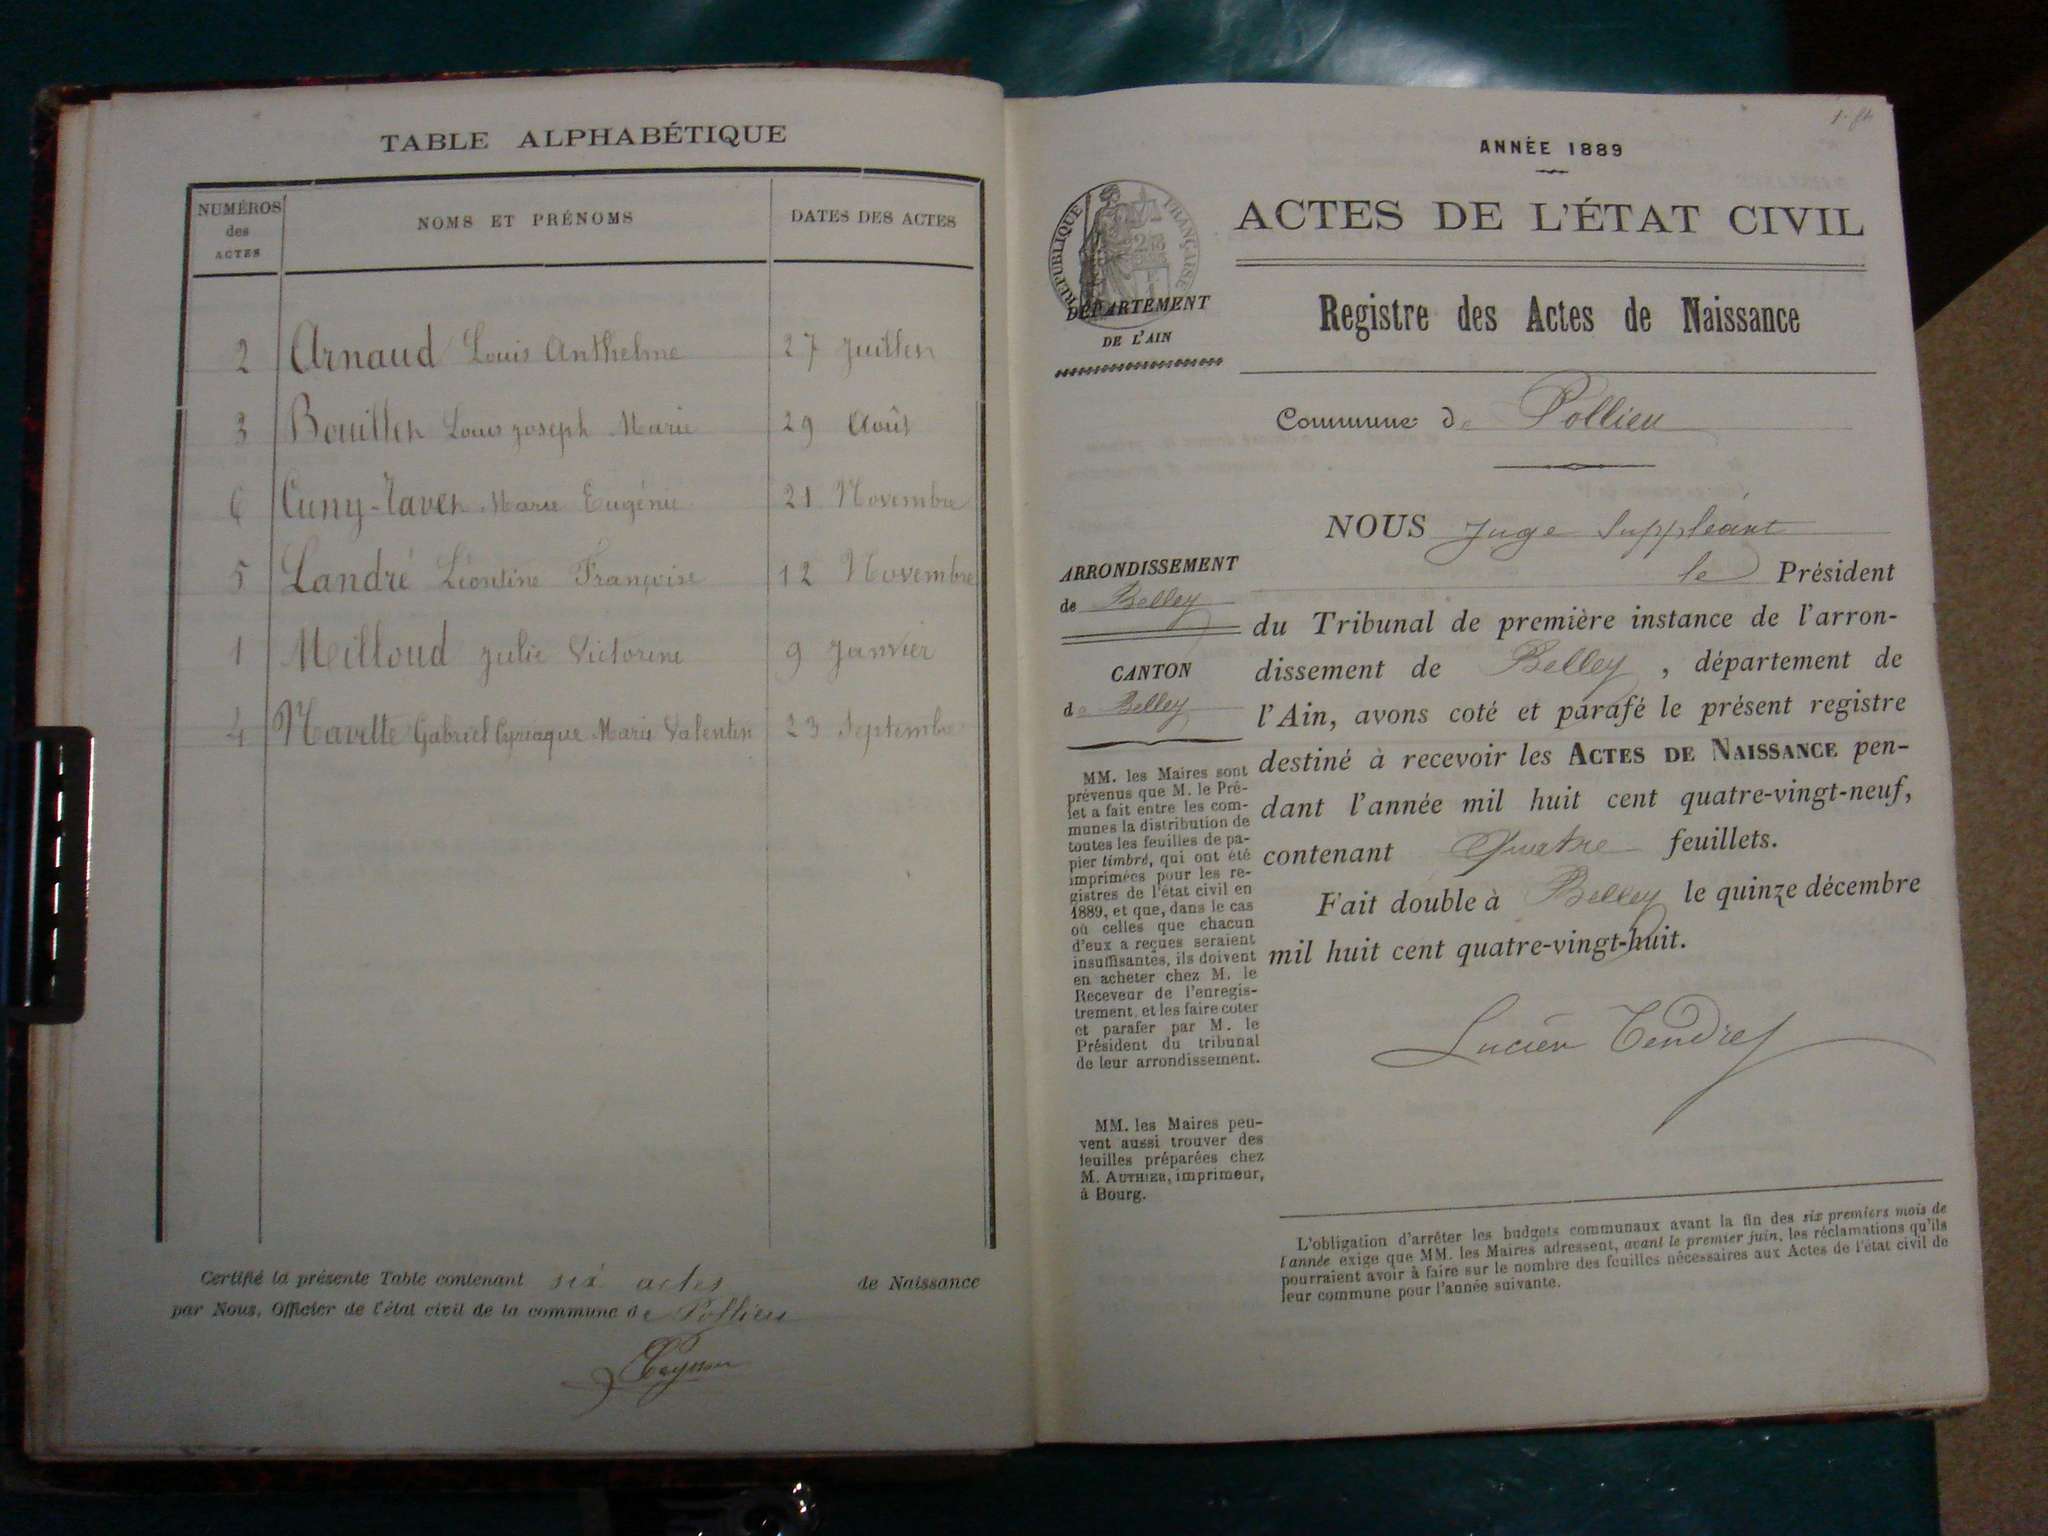 TABLE ALPHABÉTIQUE
NUMÉROS des ACTES
NOMS ET PRÉNOMS
DATES DES ACTES
2 Arnaud Louis Anthelme 27 Juillet
3 Bouillet Louis Joseph Marie 29 Août
6 Cuny-Ravet Marie Eugénie 21 Novembre
5 Landré Léontine Françoise 12 Novembre
1 Milloud Julie Victorine 9 Janvier
4 Navette Gabriel Cyriaque Marie Valentin 23 Septembre
Certifié la présente Table contenant six actes de Naissance
par Nous, Officier de l'état civil de la commune de Pollieu
ANNÉE 1889
RÉPUBLIQUE FRANÇAISE
ACTES DE L'ÉTAT CIVIL
DÉPARTEMENT
DE L'AIN
Registre des Actes de Naissance
Commune de Pollieu
ARRONDISSEMENT
de Belley
CANTON
de Belley
MM. les Maires sont
prévenus que M. le Pré-
fet a fait entre les com-
munes la distribution de
toutes les feuilles de pa-
pier timbré, qui ont été
imprimées pour les re-
gistres de l'état civil en
1889, et que, dans le cas
où celles que chacun
d'eux a reçues seraient
insuffisantes, ils doivent
en acheter chez M. le
Receveur de l'enregis-
trement, et les faire coter
et parafer par M. le
Président du tribunal
de leur arrondissement.
MM. les Maires peu-
vent aussi trouver des
feuilles préparées chez
M. AUTHIER, imprimeur,
à Bourg.
NOUS Juge Suppléant
le Président
du Tribunal de première instance de l'arron-
dissement de Belley, département de
l'Ain, avons coté et parafé le présent registre
destiné à recevoir les ACTES DE NAISSANCE pen-
dant l'année mil huit cent quatre-vingt-neuf,
contenant Quatre feuillets.
Fait double à Belley le quinze décembre
mil huit cent quatre-vingt-huit.
Lucien Tendret
L'obligation d'arrêter les budgets communaux avant la fin des six premiers mois de
l'année exige que MM. les Maires adressent, avant le premier juin, les réclamations qu'ils
pourraient avoir à faire sur le nombre des feuilles nécessaires aux Actes de l'état civil de
leur commune pour l'année suivante.